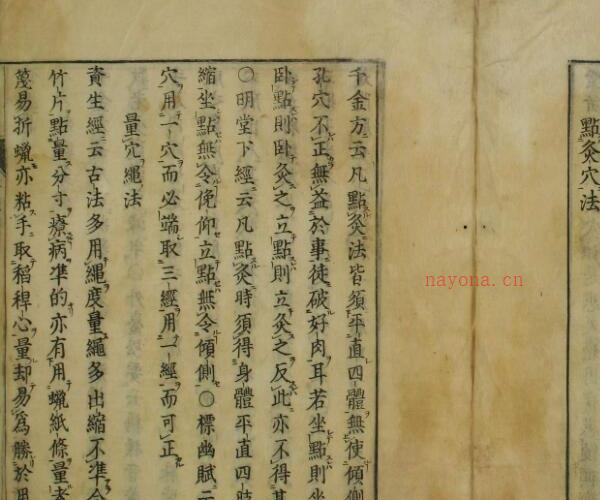 點灸穴法
千金方云凡點灸法皆須平直四體無使傾側
孔穴不正無益於事徒破好肉耳若坐點則坐
臥點則臥灸之立點則立灸之反此亦不得其
〇明堂下經云凡點灸時須得身體平直四
縮坐點無令俛仰立點無令傾側〇標幽賦云
穴用一穴而必端取三經用一經而可正
量穴繩法
資生經云古法多用繩度量繩多出縮不准今
竹片點量分寸療病准的亦有用蠟紙條量者
篾易折蠟亦粘手取稻稈心量却易爲勝於用
nayona.cn